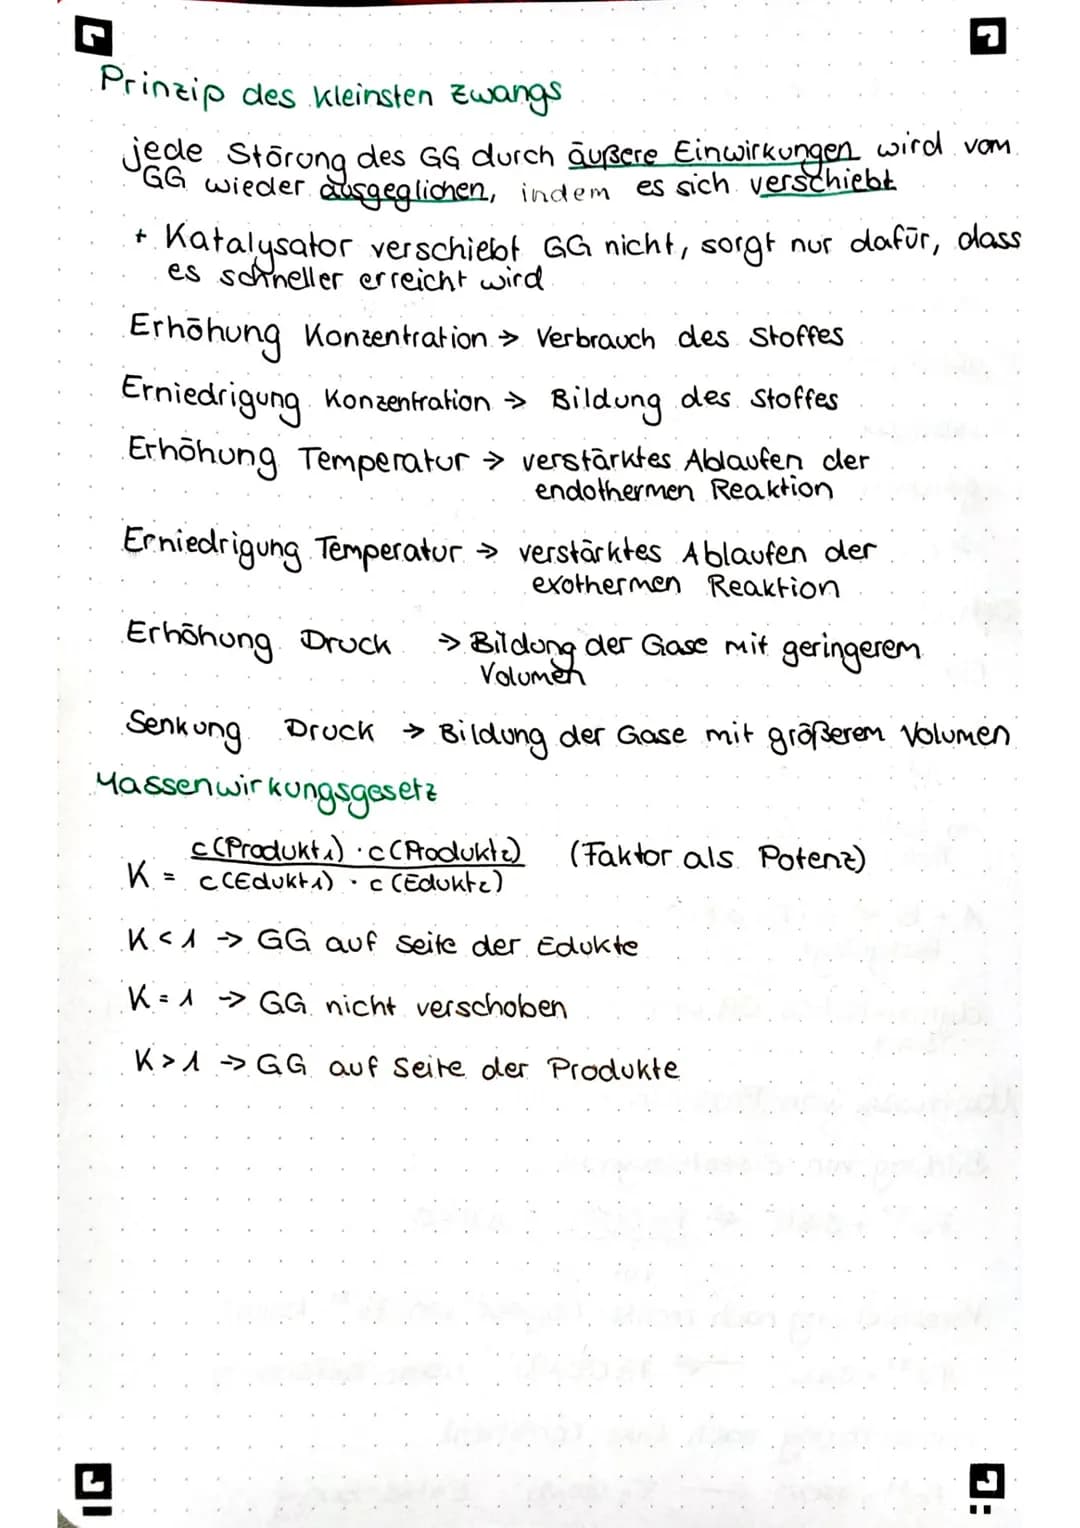 Prinzip des kleinsten Zwangs
jede Störung des GG durch äußere Einwirkungen wird vom
GG wieder ausgeglichen, indem es sich verschiebt
+ Katalysator verschiebt GG nicht, sorgt nur dafür, dass
es schneller erreicht wird
Erhöhung Konzentration → Verbrauch des Stoffes
Erniedrigung Konzentration → Bildung des Stoffes
Erhöhung Temperatur → verstärktes Ablaufen der
endothermen Reaktion
Erniedrigung Temperatur → verstärktes Ablaufen der
exothermen Reaktion
Erhöhung Druck → Bildung der Gase mit geringerem
Volumen
Senkung Druck → Bildung der Gase mit größerem Volumen
Massenwirkungsgesetz
c(Produkt1) · c(Produkt2) (Faktor als Potenz)
K = c(Edukt1) · c(Edukt2)
K < 1 → GG auf Seite der Edukte
K = 1 → GG nicht verschoben
K > 1 → GG auf Seite der Produkte